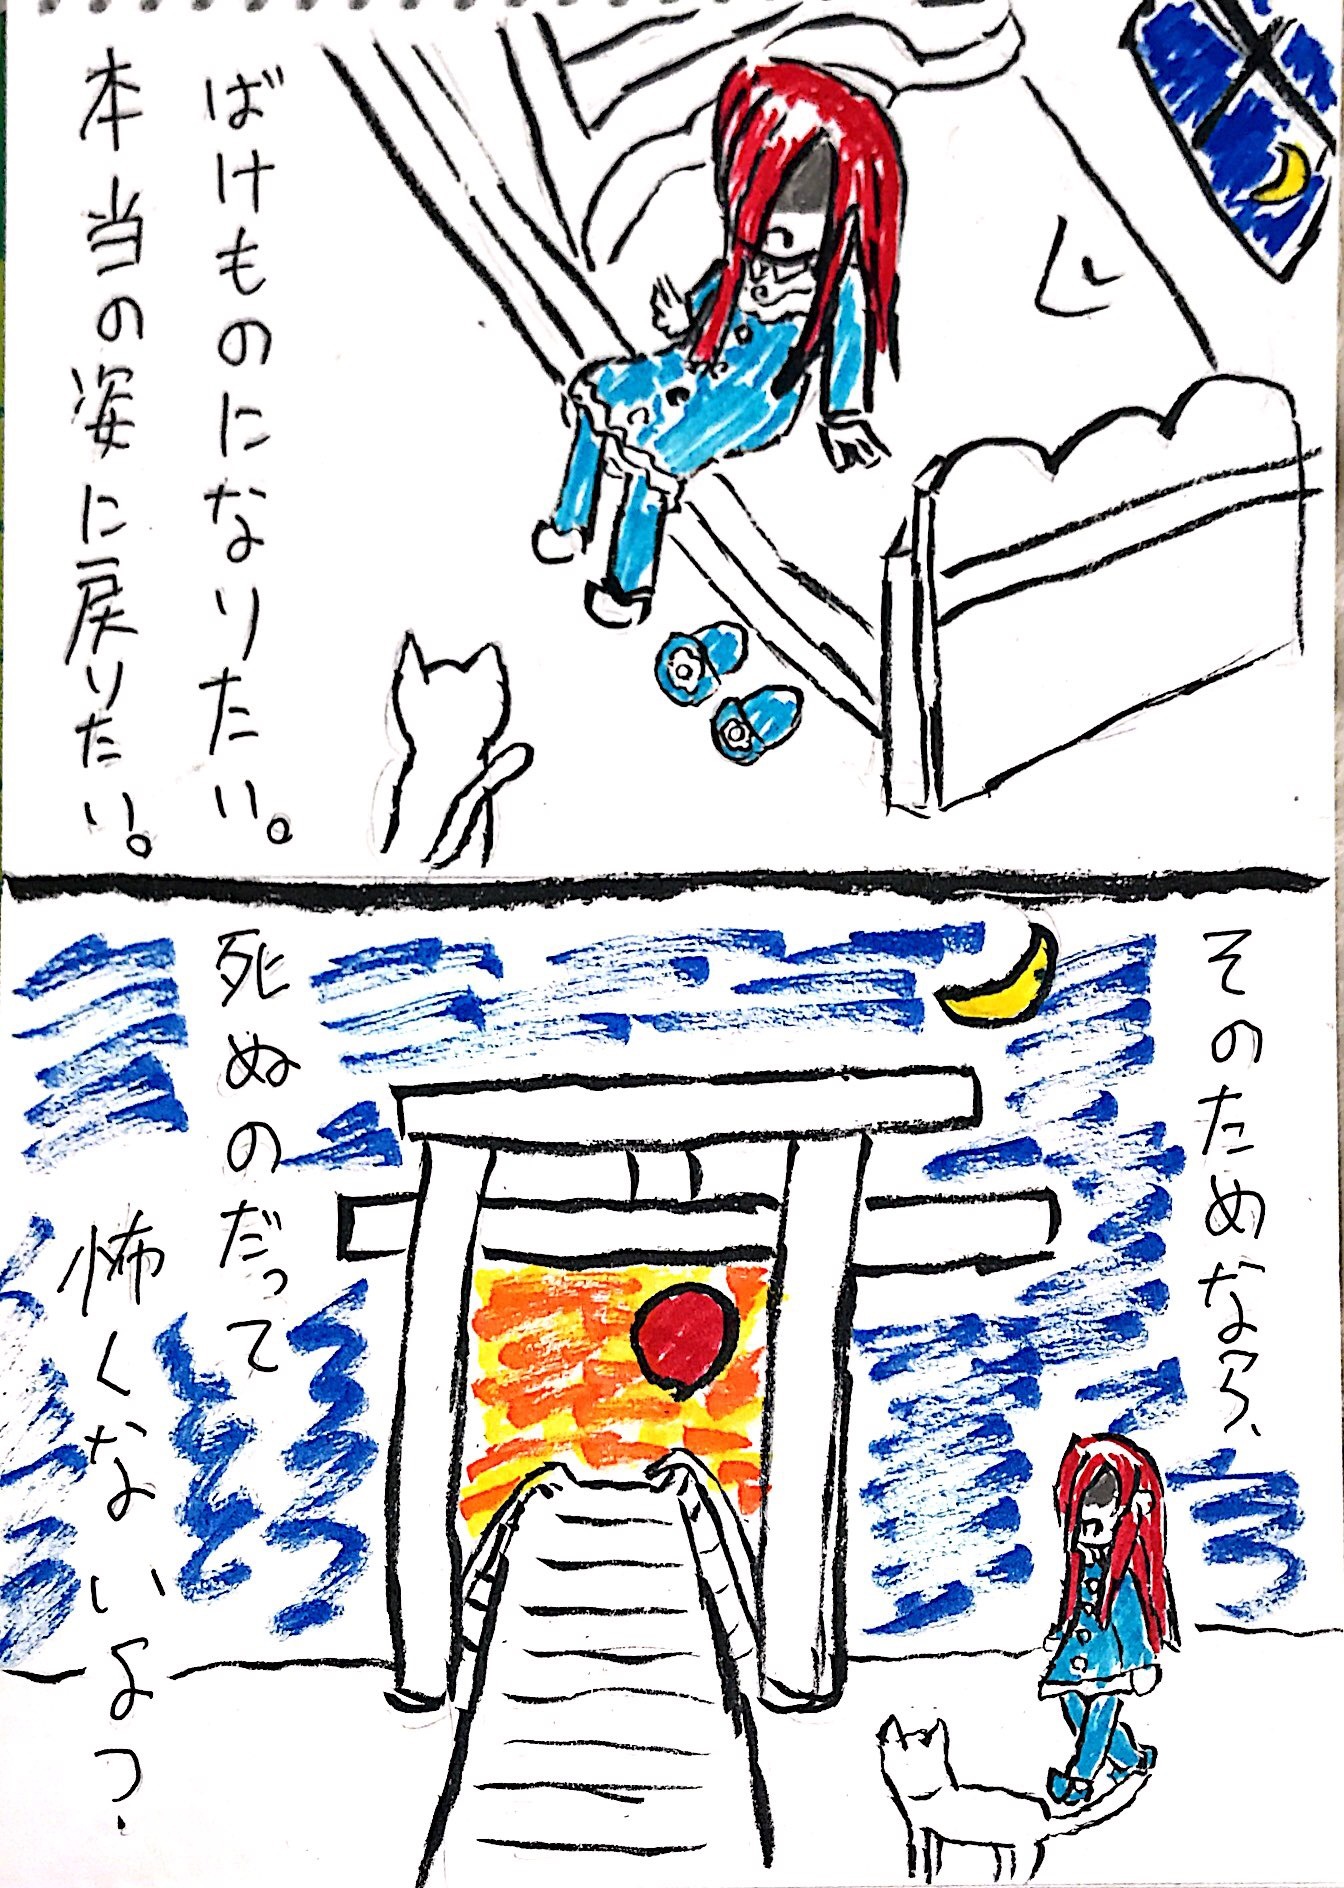 ばけものになりたい。
本当の姿に戻りたい。
そのためなら、
死ぬのだって
怖くないよ?